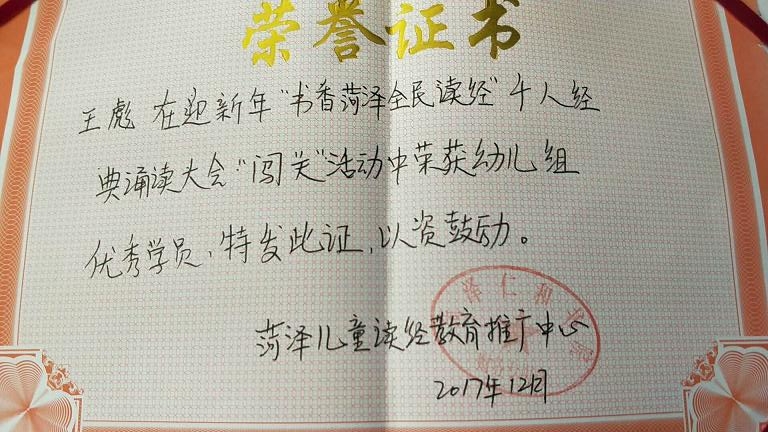 荣誉证书
王彪 在迎新年“书香菏泽全民读经”千人经
典诵读大会“闯关”活动中荣获幼儿组
优秀学员,特发此证,以资鼓励。
菏泽儿童读经教育推广中心
2017年12月